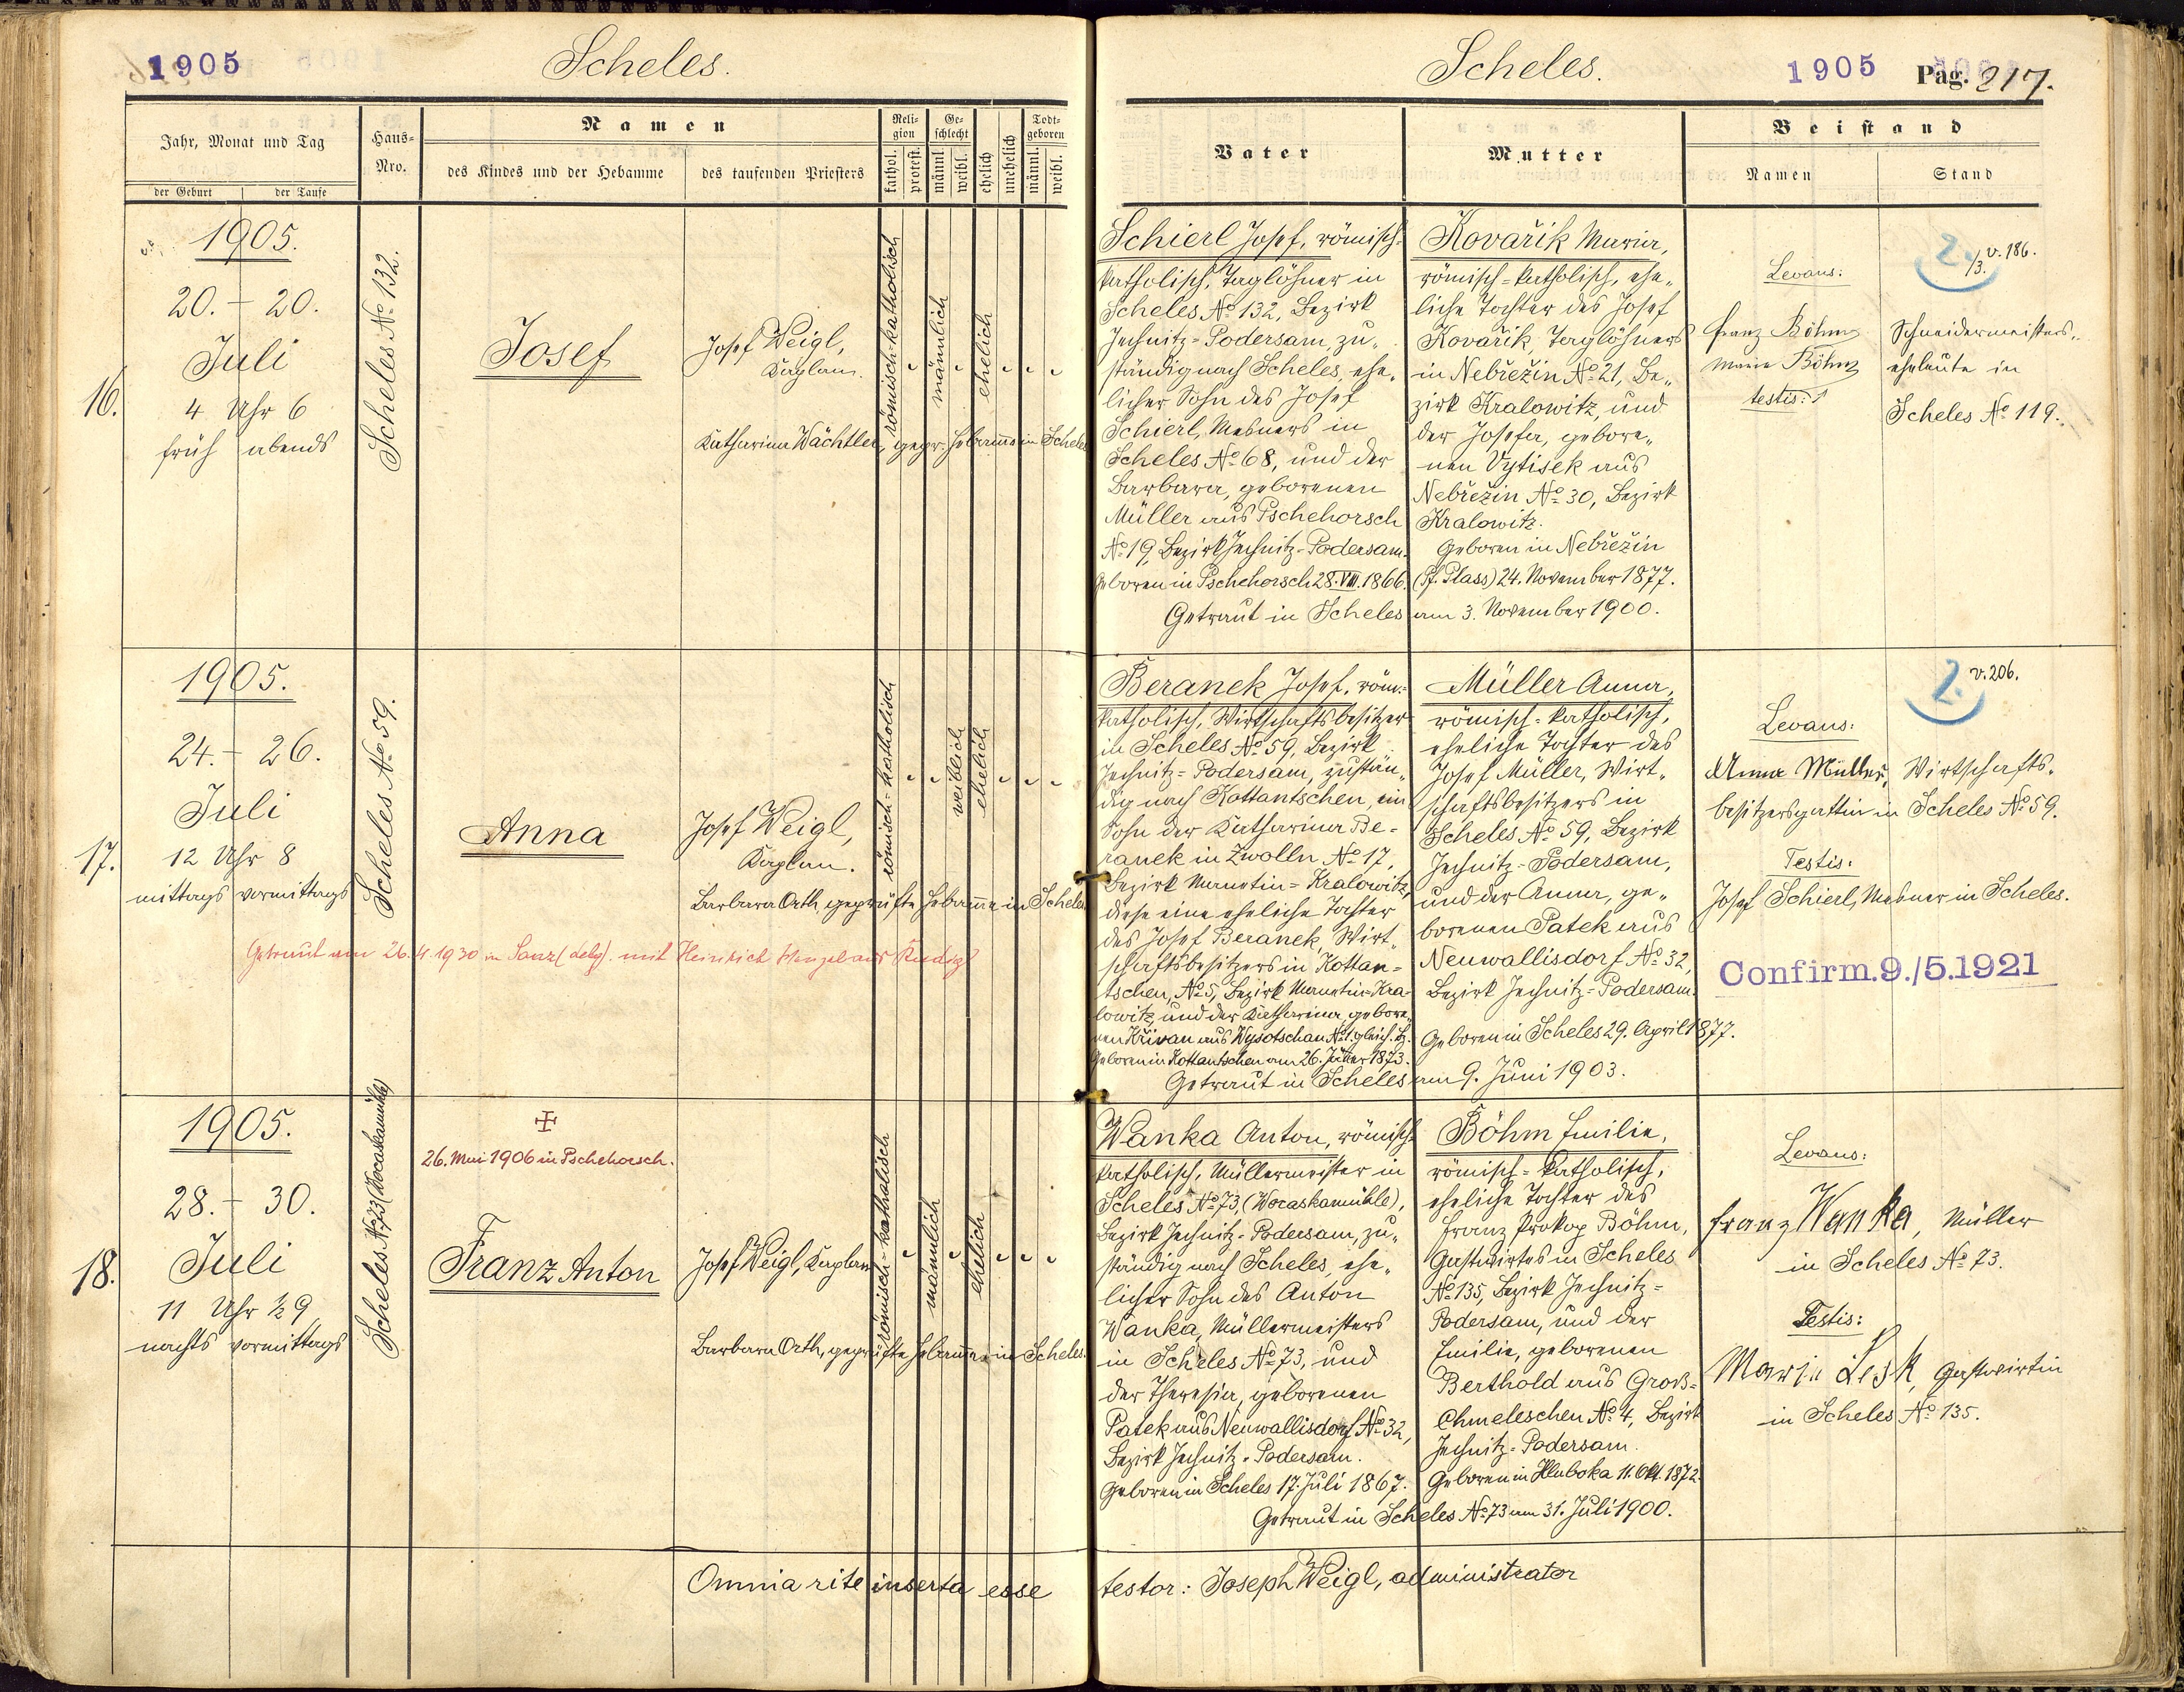 1905
Scheles.
Jahr, Monat und Tag
der Geburt
der Taufe
Haus-
Nro.
Namen
des Kindes und der Hebamme
des taufenden Priesters
Reli-
gion
kathol.
protest.
Ge-
schlecht
männl.
weibl.
ehelich
unehelich
Todt-
geboren
männl.
weibl.
Scheles.
1905
Pag. 217.
Vater
Mutter
Beistand
Namen
Stand
16.
1905.
20. – 20.
Juli
4 Uhr 6
früh abends
Scheles No 132.
Josef
Josef Weigl,
Kaplan.
Katharina Wächtler, gepr. Hebamme in Scheles
römisch-katholisch
männlich
ehelich
Schierl Josef, römisch-
katholisch, Taglöhner in
Scheles No 132, Bezirk
Jechnitz-Podersam, zu„
ständig nach Scheles, ehe„
licher Sohn des Josef
Schierl, Mesners in
Scheles No 68, und der
Barbara, geborenen
Müller aus Pschehorsch
No 19, Bezirk Jechnitz-Podersam.
Geboren in Pschehorsch 28. VIII. 1866.
Kovařik Maria,
römisch-katholisch, ehe„
liche Tochter des Josef
Kovařik, Taglöhners
in Nebřežin No 21, Be„
zirk Kralowitz, und
der Josefa, gebore„
nen Vytisek aus
Nebřežin No 30, Bezirk
Kralowitz.
Geboren in Nebřežin
(Pf. Plass) 24. November 1877.
Getraut in Scheles am 3. November 1900.
2./3. v. 186.
Levans:
Franz Böhm
Maria Böhm
testis:
Schneidermeisters„
eheleute in
Scheles No 119.
17.
1905.
24. – 26.
Juli
12 Uhr 8
mittags vormittags
Scheles No 59.
Anna
Josef Weigl,
Kaplan.
Barbara Orth, geprüfte Hebamme in Scheles
römisch-katholisch
weiblich
ehelich
Getraut am 26.4.1930 in Sanz (deleg). mit Heinrich
Beranek Josef, röm.-
katholisch, Wirtschaftsbesitzer
in Scheles No 59, Bezirk
Jechnitz-Podersam, zustän„
dig nach Kottantschen, ein
Sohn der Katharina Be-
ranek in Zwolln No 17,
Bezirk Manetin-Kralowitz,
diese eine eheliche Tochter
des Josef Beranek, Wirt„
schaftsbesitzers in Kottan-
tschen, No 5, Bezirk Manetin-Kra-
lowitz, und der Katharina, gebore„
nen Křivan aus Wysotschan No 1 gleich. Bz.
Geboren in Kottantschen am 26. Jänner 1873.
Müller Anna,
römisch-katholisch,
eheliche Tochter des
Josef Müller, Wirt„
schaftsbesitzers in
Scheles No 59, Bezirk
Jechnitz-Podersam,
und der Anna, ge„
borenen Patek aus
Neuwallisdorf No 32,
Bezirk Jechnitz-Podersam.
Geboren in Scheles 29. April 1877.
Getraut in Scheles am 9. Juni 1903.
2. v. 206.
Levans:
Anna Müller, Wirtschafts„
besitzersgattin in Scheles No 59.
Testis:
Josef Schierl, Mesner in Scheles.
Confirm. 9./5.1921
18.
1905.
28. – 30.
Juli
11 Uhr ½ 9
nachts vormittags
Scheles No 73 (Wocaskamühle)
26. Mai 1906 in Pschehorsch.
Franz Anton
Josef Weigl, Kaplan
Barbara Orth, geprüfte Hebamme in Scheles.
römisch-katholisch
männlich
ehelich
Wanka Anton, römisch-
katholisch, Müllermeister in
Scheles No 73, (Wocaskamühle),
Bezirk Jechnitz-Podersam, zu„
ständig nach Scheles, ehe„
licher Sohn des Anton
Wanka, Müllermeisters
in Scheles No 73, und
der Theresia, geborenen
Patek aus Neuwallisdorf No 32,
Bezirk Jechnitz-Podersam.
Geboren in Scheles 17. Juli 1867.
Böhm Emilie,
römisch-katholisch,
eheliche Tochter des
Franz Prokop Böhm,
Gastwirtes in Scheles
No 135, Bezirk Jechnitz-
Podersam, und der
Emilie, geborenen
Berthold aus Gross-
Chmeleschen No 4, Bezirk
Jechnitz-Podersam.
Geboren in Hluboka 11. Okt. 1872.
Getraut in Scheles No 73 am 31. Juli 1900.
Levans:
Franz Wanka, Müller
in Scheles No 73.
Testis:
Maria Lesk, Gastwirtin
in Scheles No 135.
Omnia rite inserta esse testor: Joseph Weigl, administrator